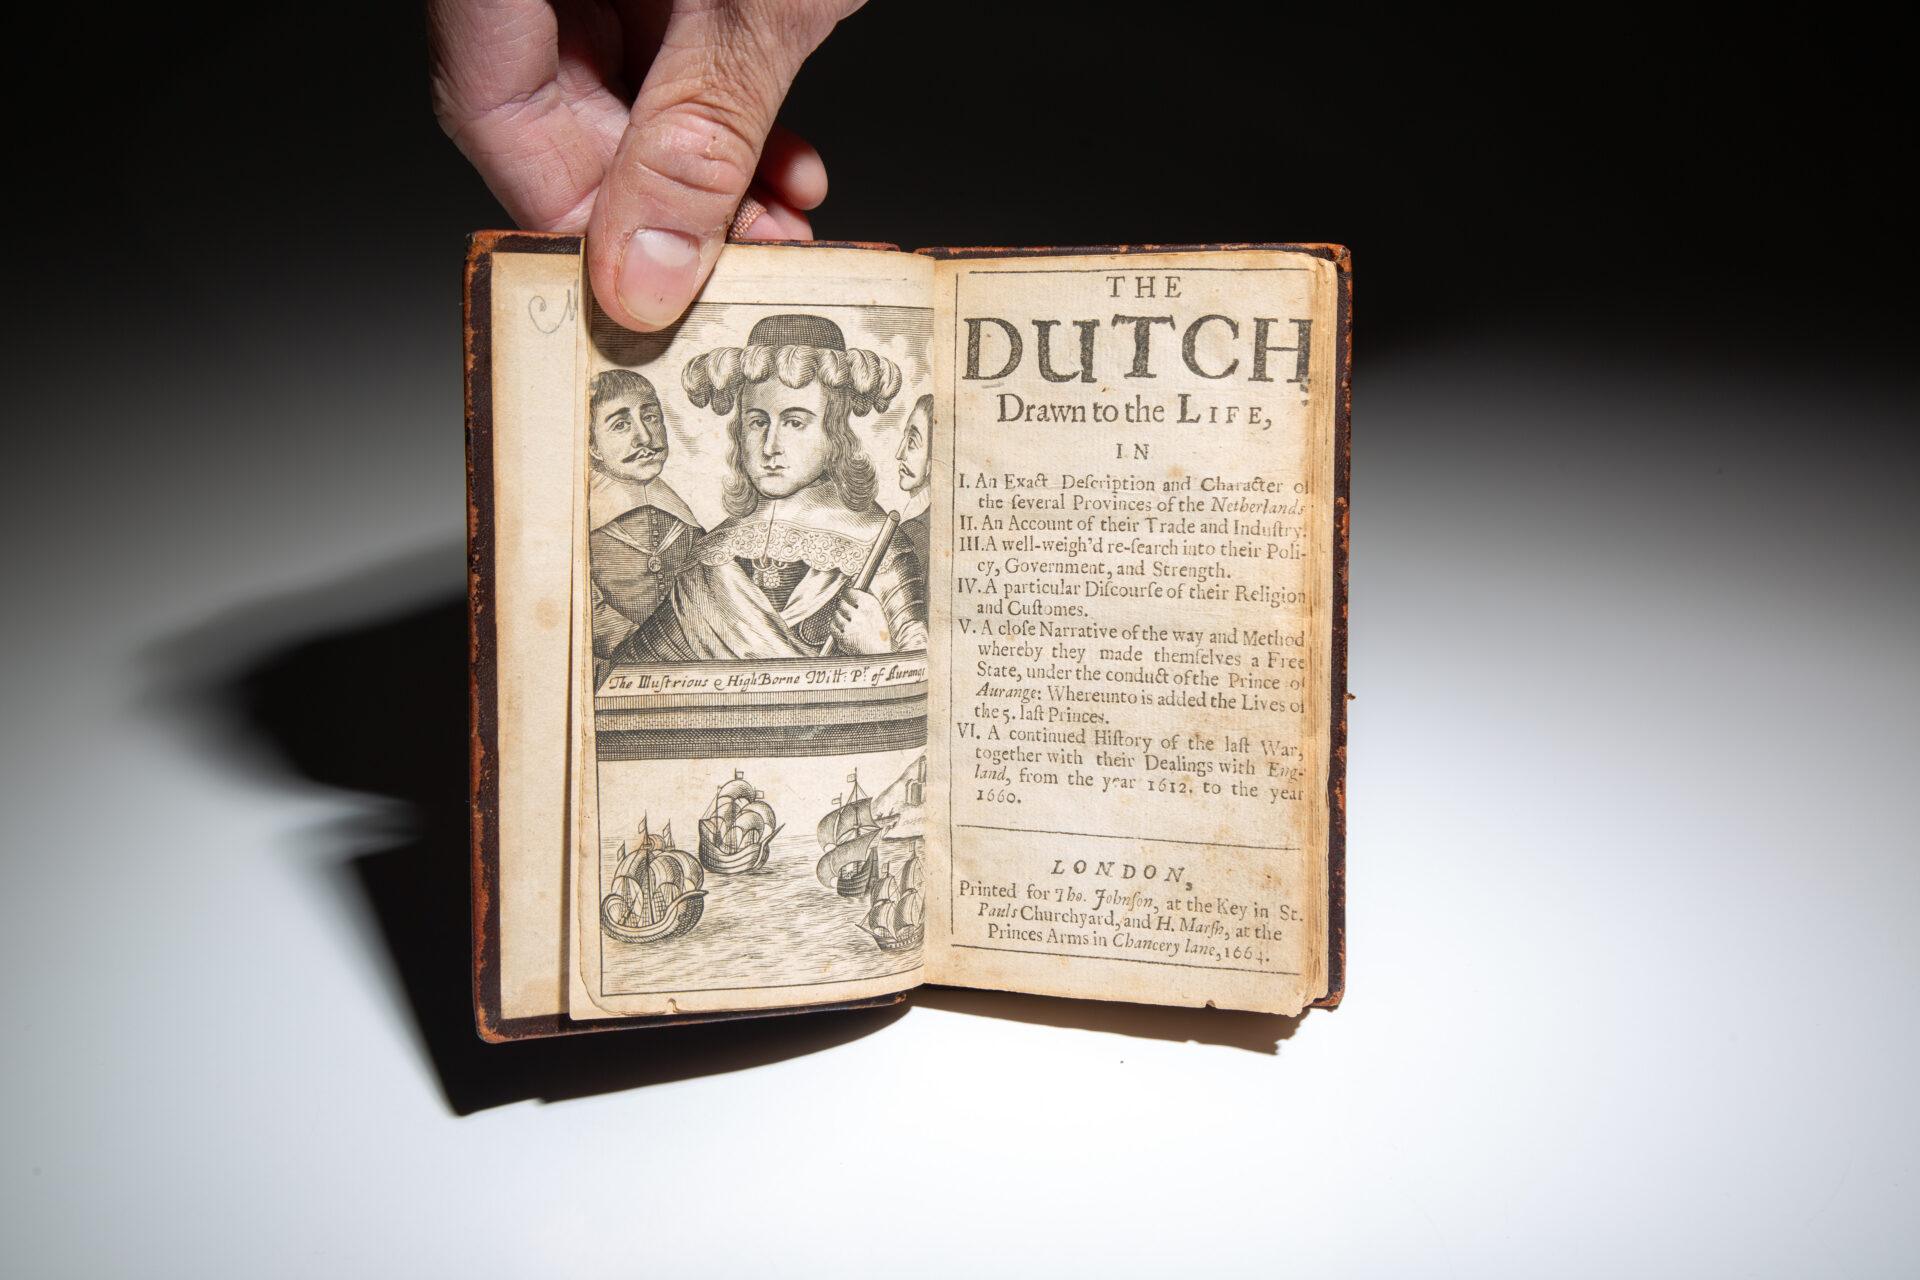 The Illustrious & High Borne Will: Pr. of Aurange
THE
DUTCH
Drawn to the LIFE,
IN
I. An Exact Deſcription and Character of
the ſeveral Provinces of the Netherlands
II. An Account of their Trade and Induſtry.
III. A well-weigh'd re-ſearch into their Poli-
cy, Government, and Strength.
IV. A particular Diſcourſe of their Religion
and Cuſtomes.
V. A cloſe Narrative of the way and Method
whereby they made themſelves a Free
State, under the conduct of the Prince of
Aurange: Whereunto is added the Lives of
the 5. laſt Princes.
VI. A continued Hiſtory of the laſt War,
together with their Dealings with Eng-
land, from the year 1612. to the year
1660.
LONDON,
Printed for Tho. Johnſon, at the Key in St.
Pauls Churchyard, and H. Marſh, at the
Princes Arms in Chancery lane, 1664.